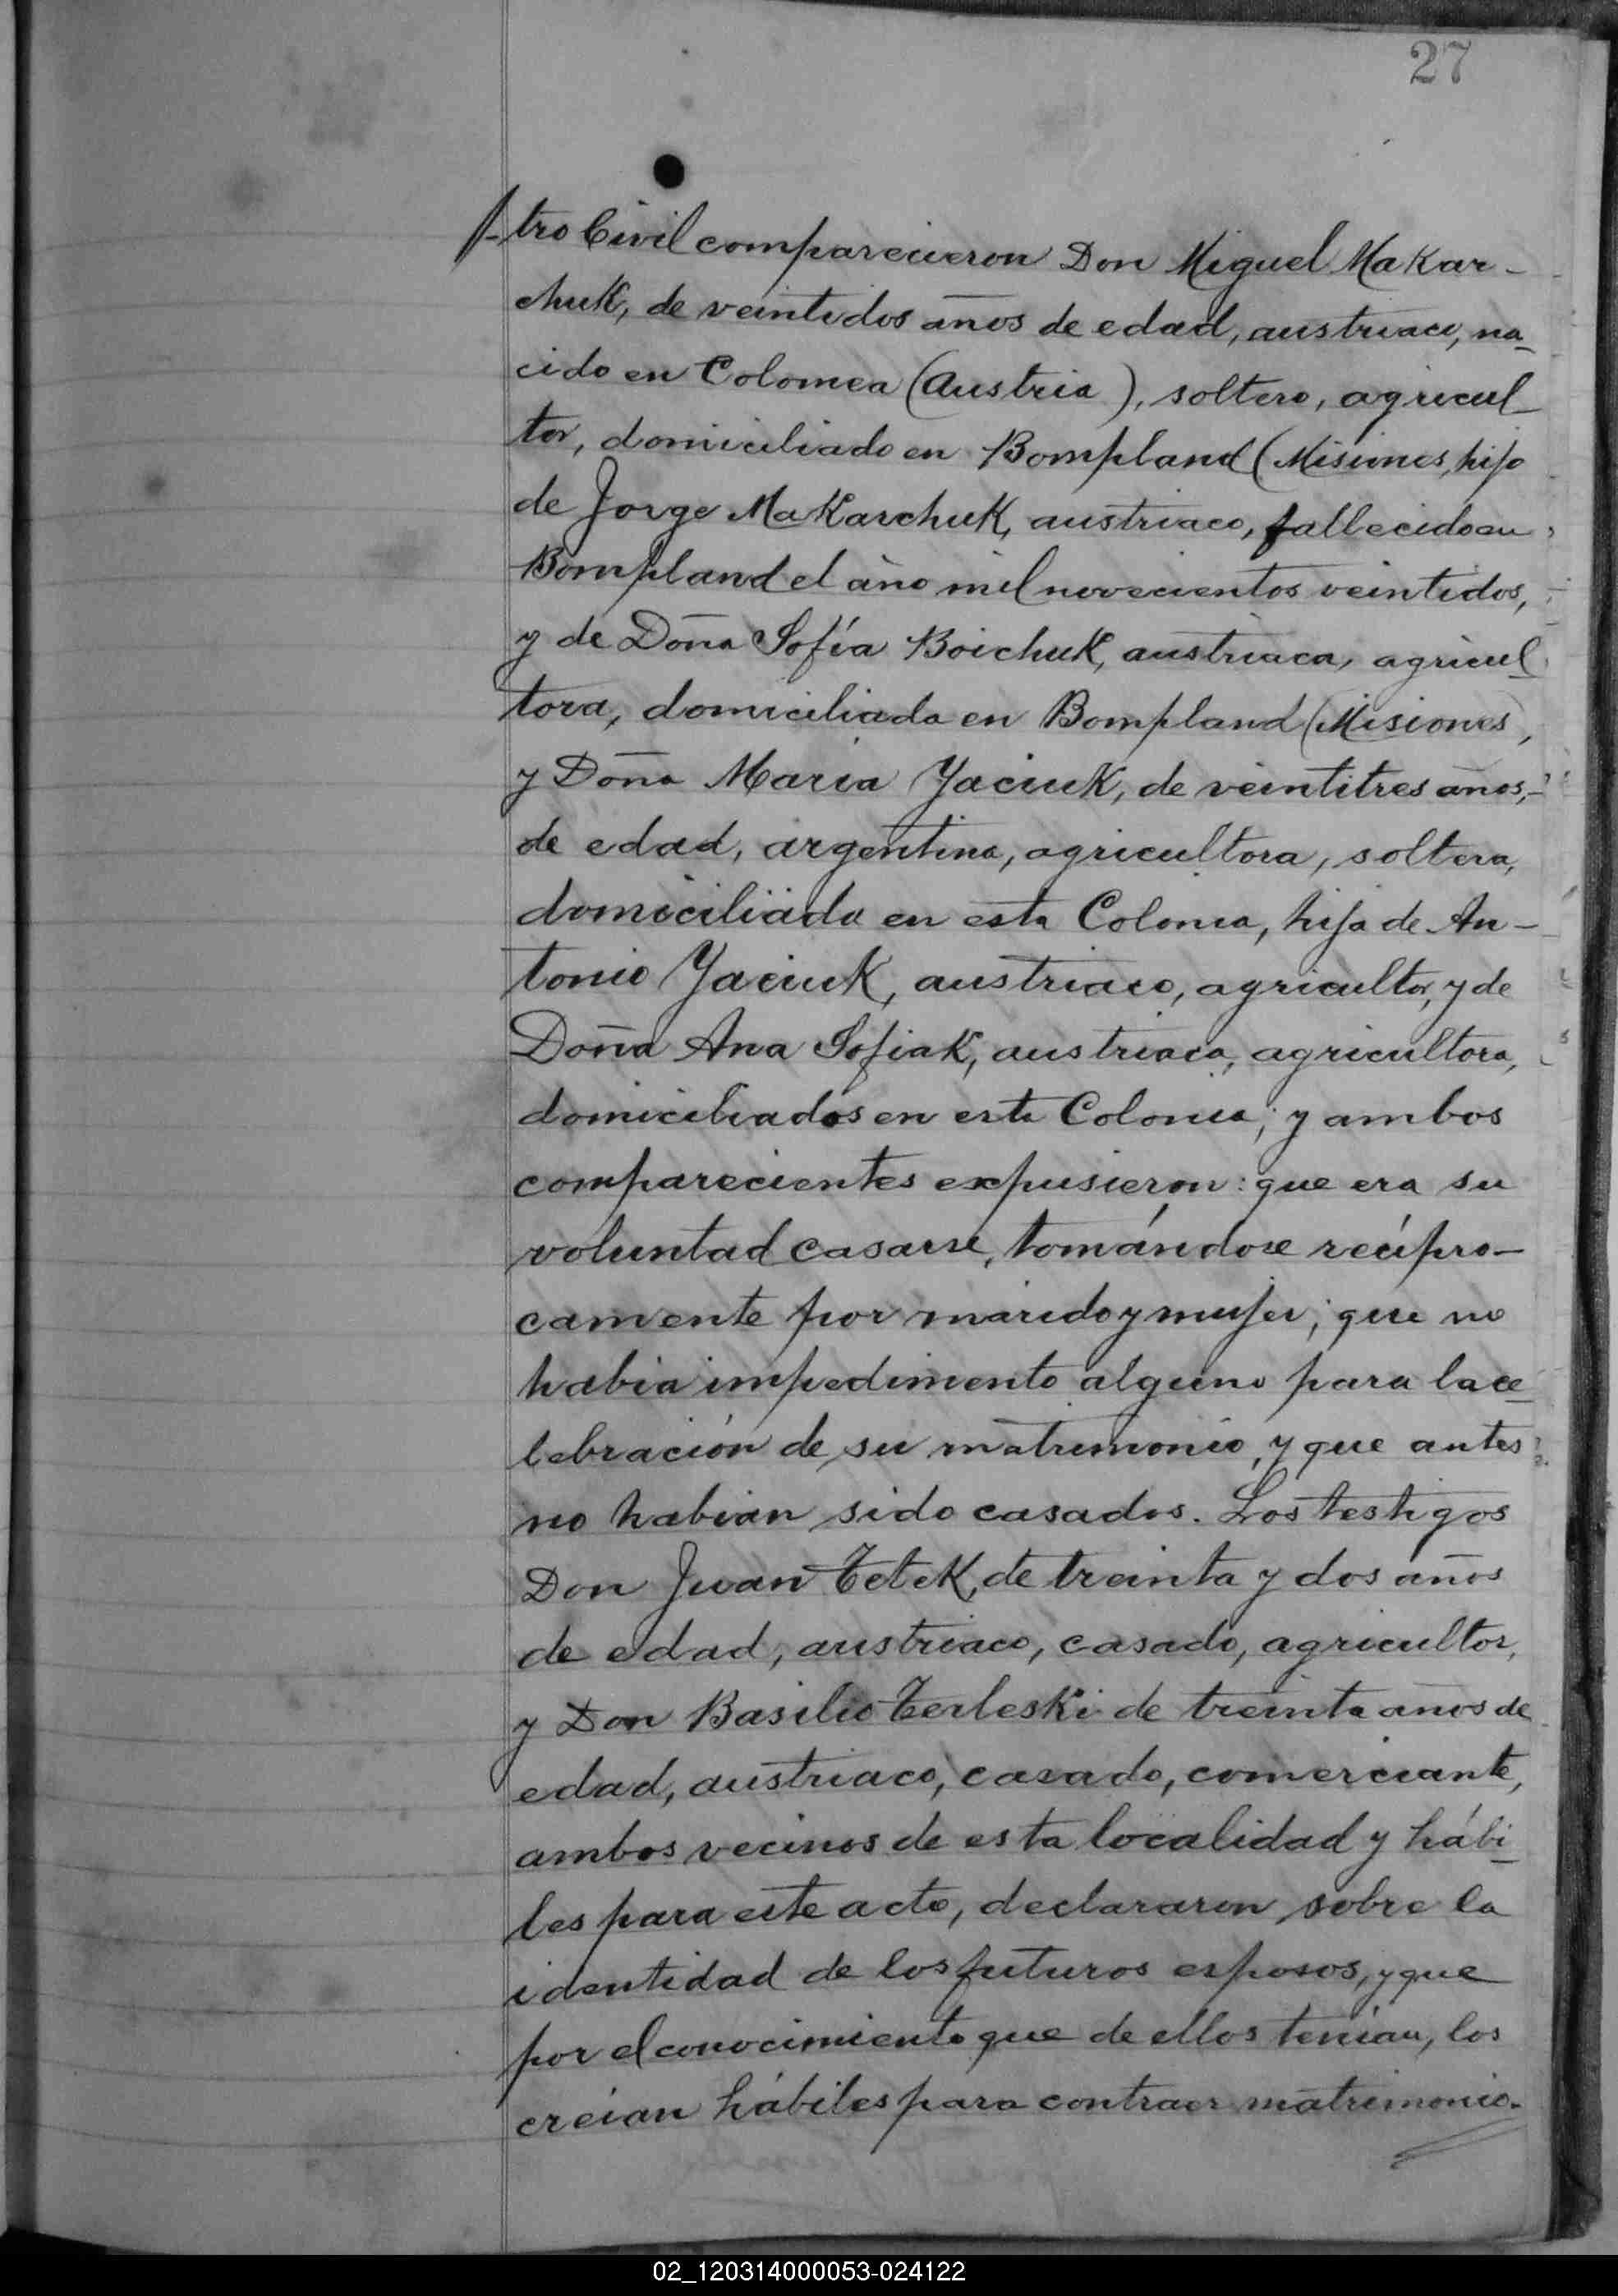 27
tro Civil comparecieron Don Miguel Makar-
chuk, de veintidos años de edad, austriaco, na-
cido en Colomea (Austria), soltero, agricul-
tor, domiciliado en Bompland (Misiones, hijo
de Jorge Makarchuk, austriaco, fallecido en
Bompland el año mil novecientos veintidos,
y de Doña Sofía Boichuk, austriaca, agricul-
tora, domiciliada en Bompland (Misiones),
y Doña Maria Yaciuk, de veintitres años,
de edad, argentina, agricultora, soltera,
domiciliada en esta Colonia, hija de An-
tonio Yaciuk, austriaco, agricultor, y de
Doña Ana Sofiak, austriaca, agricultora,
domiciliados en esta Colonia; y ambos
comparecientes expusieron: que era su
voluntad casarse, tomándose recípro-
camente por marido y mujer; que no
habia impedimento alguno para la ce-
lebración de su matrimonio, y que antes
no habian sido casados. Los testigos
Don Juan Tetek, de treinta y dos años
de edad, austriaco, casado, agricultor,
y Don Basilio Terleski de treinta años de
edad, austriaco, casado, comerciante,
ambos vecinos de esta localidad y hábi-
les para este acto, declararon sobre la
identidad de los futuros esposos, y que
por el conocimiento que de ellos tenian, los
creian hábiles para contraer matrimonio.
02_120314000053-024122